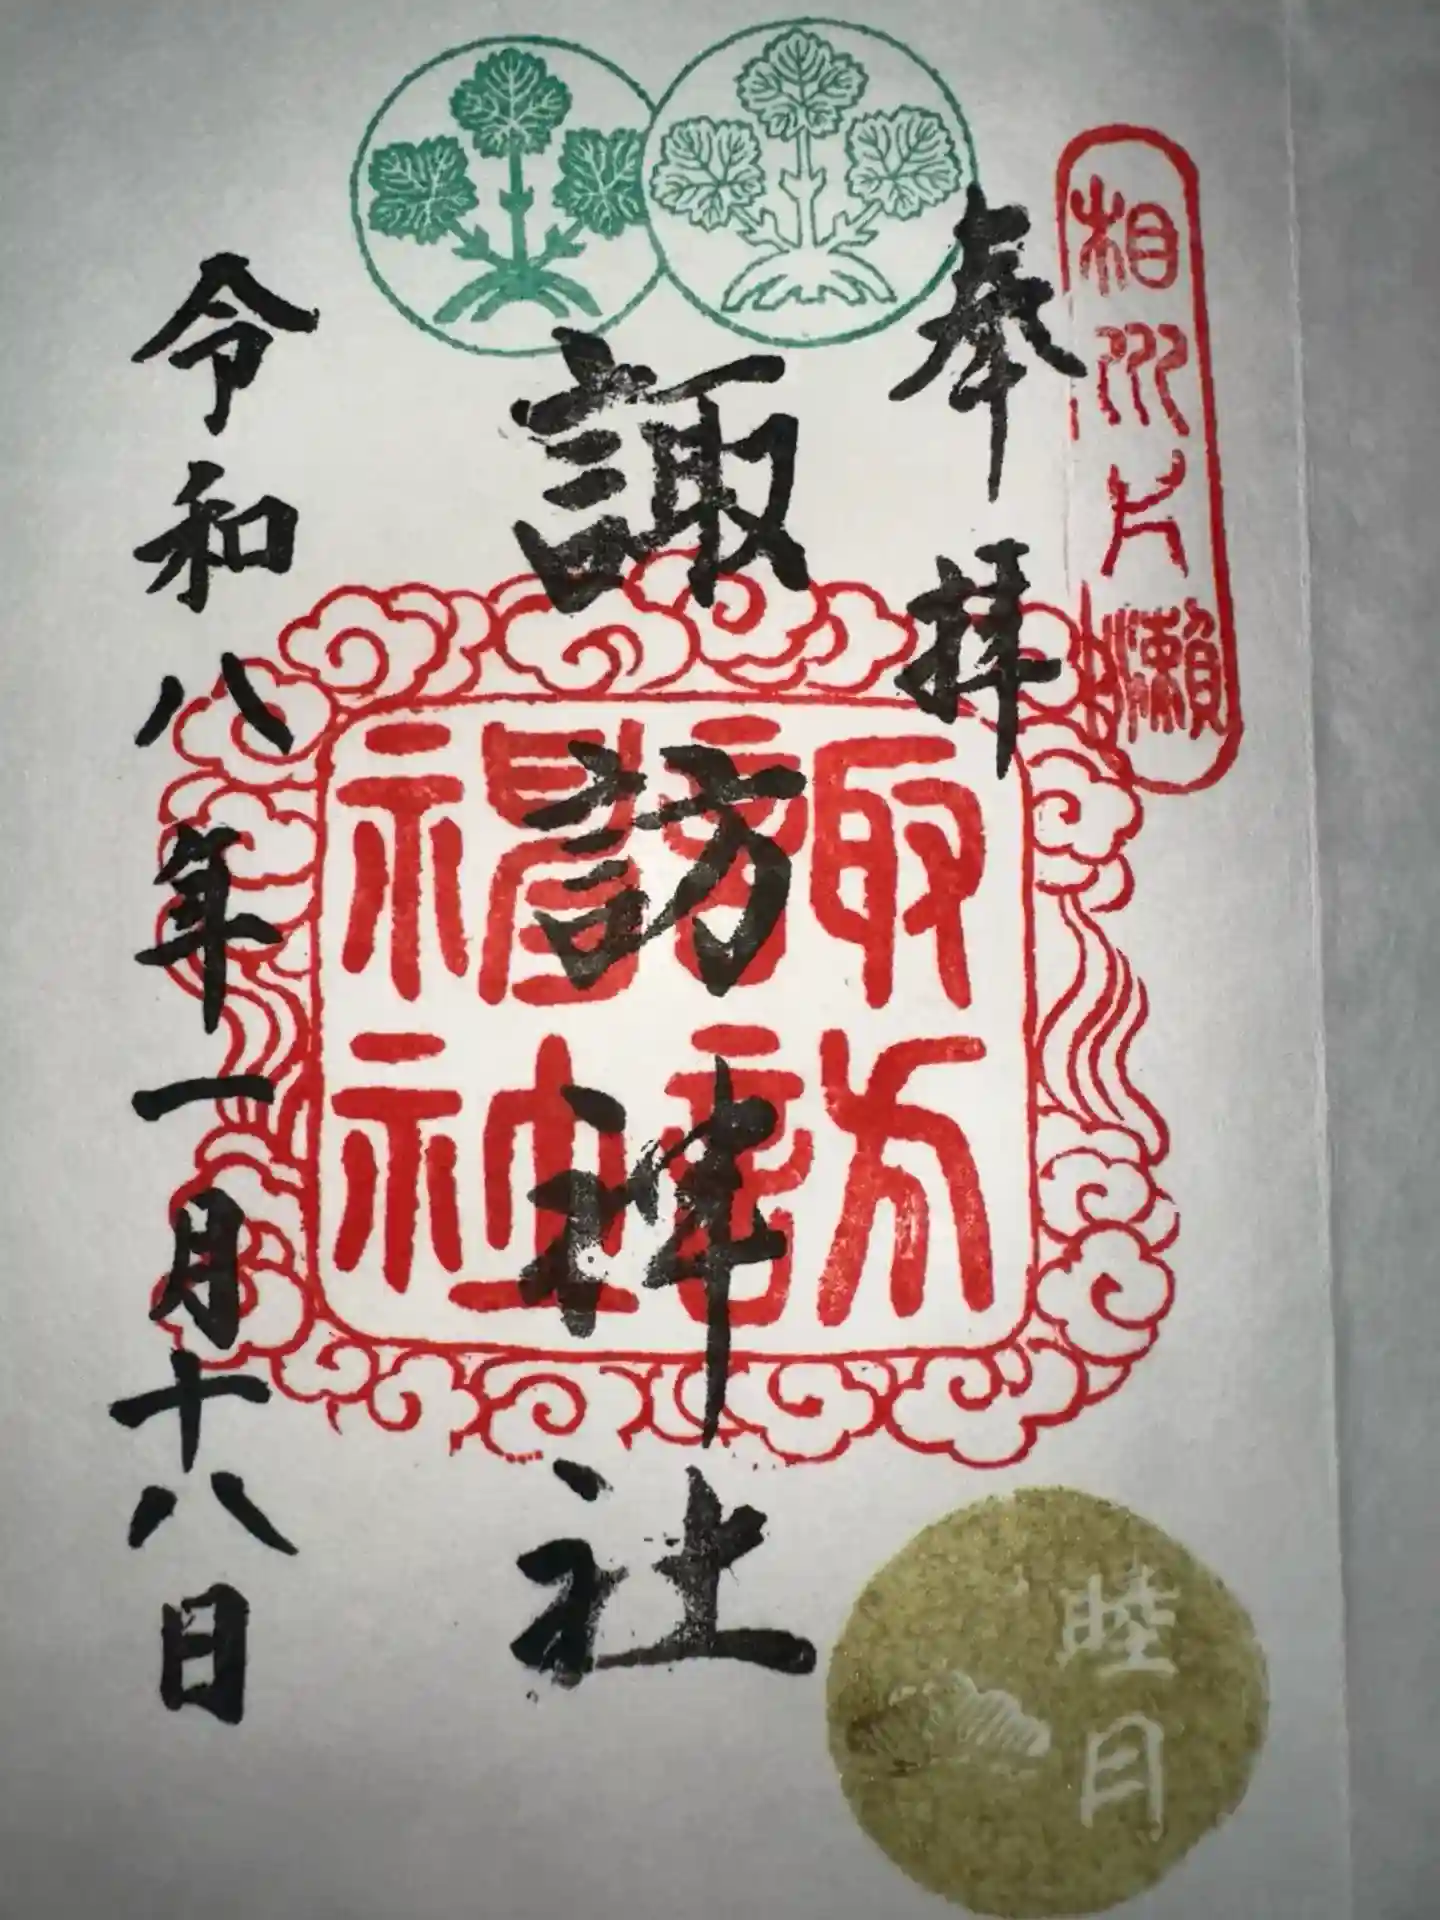 相州片瀬
奉拝
諏訪神社
諏訪
神社
令和八年一月十八日
睦月